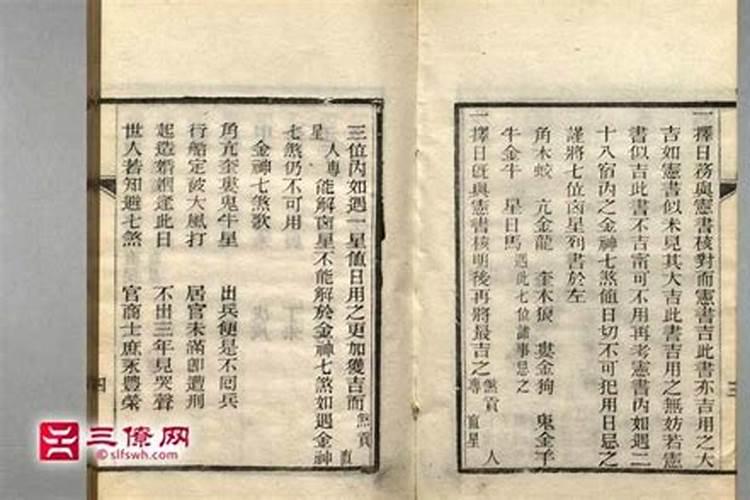 一擇日務與憲書核對而憲書吉此書亦吉用之大
吉如憲書似未見其大吉此書吉用之無妨若憲
書似吉此書不吉甯可不用再考憲書內如遇二
十八宿內之金神七煞值日切不可犯用日忌之
謹將七位凶星列書於左
角木蛟 亢金龍 奎木狼 婁金狗 鬼金羊
牛金牛 星日馬 遇此七位諸事忌之
一擇日旣與憲書核明後再將最吉之煞貢專直星人
三
三位內如遇一星值日用之更加獲吉而煞貢直
星人專能解凶星不能解於金神七煞如遇金神
七煞仍不可用
金神七煞歌
角亢奎婁鬼牛星 出兵便是不囘兵
行船定被大風打 居官未滿卽遭刑
起造婚姻逢此日 不出三年見哭聲
世人若知避七煞 官商士庶永豐榮
四
三僚网
©slfswh.com